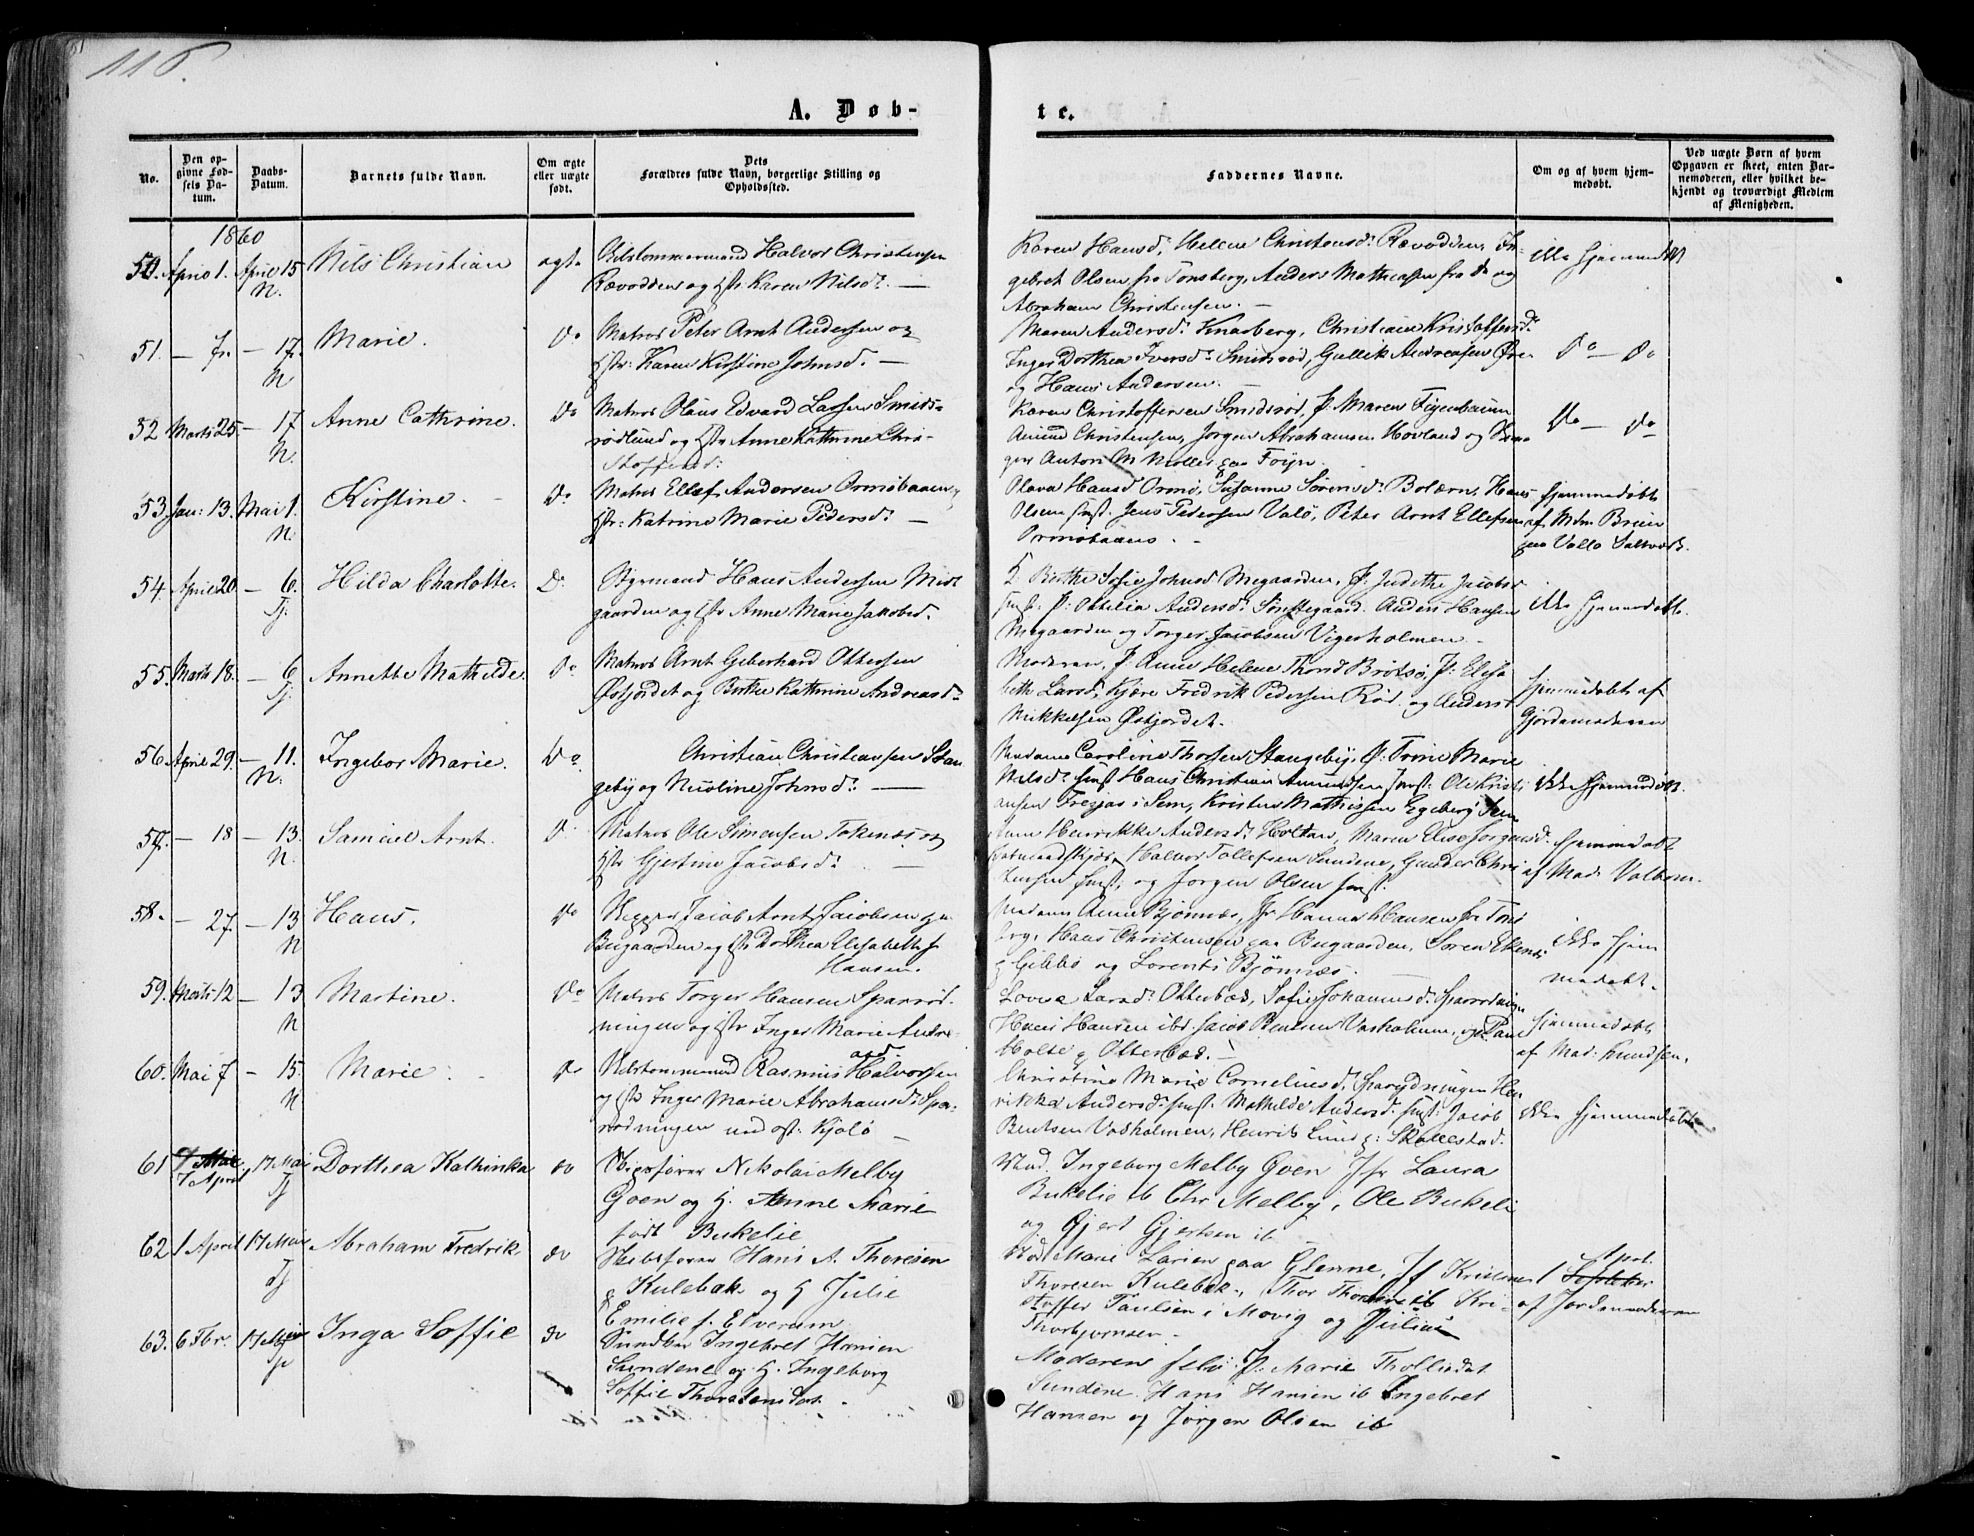 116.
A. Døb-
te.
No.
Den op-
givne Fød-
sels Da-
tum.
Daabs-
Datum.
Barnets fulde Navn.
Om ægte
eller uægte
født.
Dets
Forældres fulde Navn, borgerlige Stilling og
Opholdssted.
Faddernes Navne.
Om og af hvem hjem-
medøbt.
Ved uægte Børn af hvem
Opgaven er skeet, enten Bar-
nemoderen, eller hvilket be-
kjendt og troværdigt Medlem
af Menigheden.
1860
50. April 1. April 15 N. Nils Christian ægte Halvor Christensen
Rævodden og Hstr Karen Nilsd.
Karen Hansd. Helene Christensd. Rævodden, In-
gebret Olsen fra Tønsberg, Anders Mathiassen fra do og
Abraham Christensen.
ikke hjemmedøbt
51. — 7. — 17. N Marie. do Matros Peter Arnt Andersen og
Hstr: Karen Kirstine Johnsd.
Maren Andersd. Knarberg, Christiane Kristoffersd.
Inger Dorthea Iversd. Smidsrød, Gullik Andreasen
og Hans Andersen.
do — do
52 Marts 25. — 17 N. Anne Cathrine. do Matros Olaus Edvard Larsen Smids-
rødlund og Hstr Anne Kathrine Chri-
stoffersd:
Karen Christoffersen Smidsrød, P. Maren Figenbaum
Amund Christensen, Jørgen Abrahamsen Hovland og
Anton M Møller paa Føyn.
do — do
53. Jan: 13. Mai 1. N. Kirstine. do Matros Ellef Andersen Ormøbaaen,
Hstr: Katrine Marie Pedersd.
Olava Hansd Ormø, Susanne Sørensd. Bolærn, Hans
Olsen smst. Jens Pedersen Valø, Peter Arnt Ellefsen
Ormøbaaen.
hjemmedøbt
af Mdm Bruun
paa Vallø Saltværk.
54. April 20. — 6. Tj. Hilda Charlotte. do Styrmand Hans Andersen Mid
gaarden og Hstr Anne Marie Jakobsd.
Berthe Sofie Johnsd Megaarden, P. Judithe Jacobsd
smst. P: Ottilia Andersd. Sønstegaard. Anders Hansen
Megaarden og Torger Jacobsen Vigerholmen.
ikke hjemmedøbt.
55. Marts 18. — 6 Tj. Annette Mathilde. do Matros Arnt Geberhard Ottersen
Østjordet og Berthe Kathrine Andreasd.
Moderen, P. Anne Helene Thorsd Brøtsø, P: Elisa
beth Larsd, Kjøre Fredrik Pedersen Rød. og Anders
Mikkelsen Østjordet.
hjemmedøbt af
Gjordemoderen
56. April 29. — 11. N. Ingebor Marie. do Christian Christiansen Stan
geby og Nicoline Johnsd.
Madame Caroline Thorsen Stangeby, P: Trine Marie
Nilsd. smst Hans Christian Amundsen smst. Ole Kristi
ansen Trejas i Sem, Kristen Mathissen Egeberg Sem
ikke hjemmedøbt.
57. — 18 — 13. N. Samuel Arnt. do Matros Ole Simensen Tokenæs og
Hstr Gjertine Jacobsd.
Anne Henrikke Andersd. Holtan, Maren Elise Jørgensd.
Halvor Tollefsen Sundene, Gunder Chri
stensen smst, og Jørgen Olsen smst.
hjemmedøbt
af Mad. Valbom.
58. — 27. — 13 N Hans. do Skipper Jacob Arnt Jacobsen paa
Bugaarden og Hstr Dorthea Elisabeth f.
Hansen.
Madam Anne Bjønnes, Jfr Hanna Hansen fra Tøns
berg, Hans Christensen paa Bugaarden, Søren
Gibbø og Lorents Bjønnæs.
ikke hjem
medøbt.
59. Marts 12 — 13 N Martine. do Matros Torger Hansen Sparrød.
ningen og Hstr Inger Marie Andre
asd.
Lovise Larsd. Otterbæk, Sofie Johannesd. Sparrødningen
Hans Hansen ibd Jacob Bentsen Vasholmen, og
Holte g Otterbæk.
hjemmedøbt
af Mad: Knudsen.
60. Mai 7 — 15. N Marie. do Rasmus Halvorsen
og Hstr Inger Marie Abrahamsd. Spa-
rødningen Kjølø
Christine Marie Corneliusd. Sparødningen Hen
rikka Andersd. smst. Mathilde Andersd. smst. Jacob
Bentsen Vasholmen, Henrik Lund g: Skallestad.
ikke hjemmedøbt
61 7 Mai 7 April 17 Mai Tj Dorthea Kathinka do Skipsfører Nikolai Melby
Goen og H. Anne Marie
født Bekelie
Mad. Ingeborg Melby Goen Jfr Laura
Bekelie ib Chr Melby, Ole Bekeli
og Gjert Gjertsen ib
62 1 April 17 Mai Tj Abraham Fredrik do Skibsfører Hans A. Thoresen
g Kulebak og H Julie
Emilie f. Elverum
Mad Marie Larsen paa Glenne, Jf Kristine
Thoresen Kulebak, Thor Thoresen ib Kri-
stoffer Paulsen i Movig og Julius
Thorbjørnsen.
1 Septbr April
af Jordemoderen
63. 6 Fbr. 17 Mai Tj Inga Soffie do Ingebret Hansen
Sundene og H. Ingeborg
Soffie Thorstensdat.
Moderen selv P. Marie Thollisdat
Sundene Hans Hansen ib Ingebret
Hansen og Jørgen Olsen ib